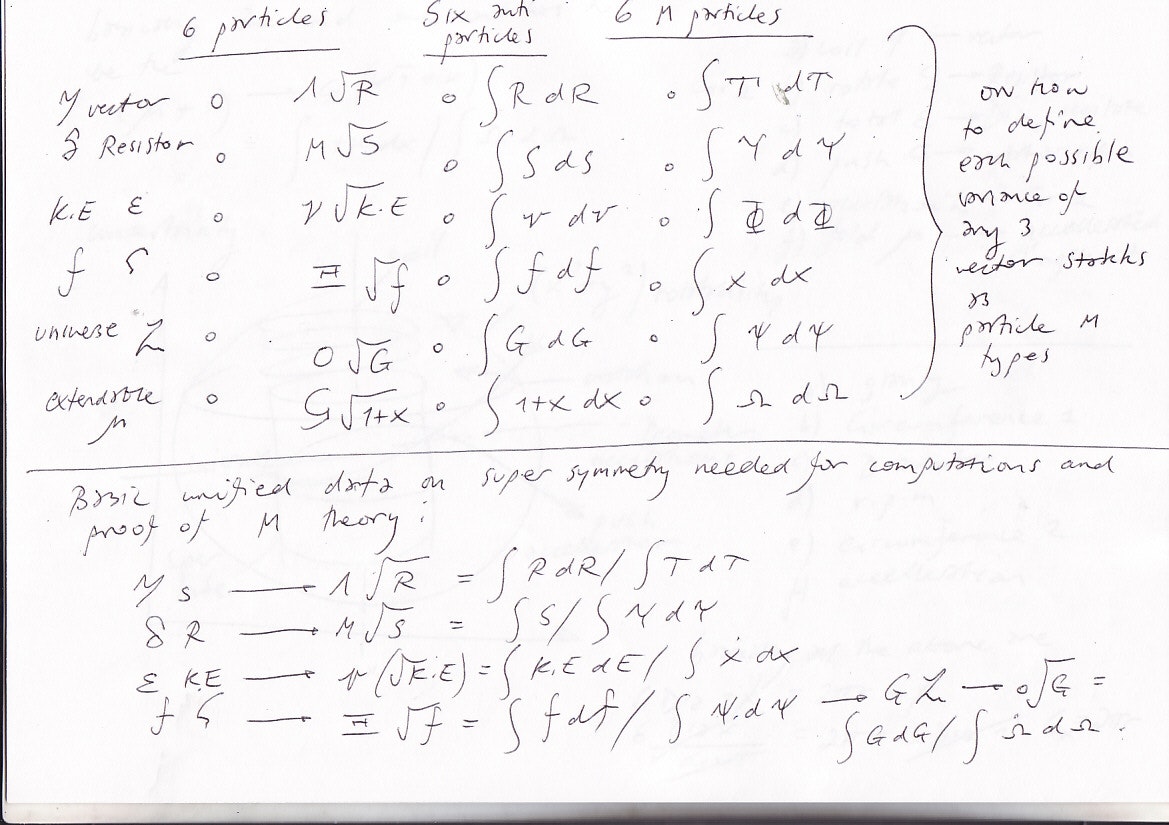 6 particles Six anti particles 6 M particles
γ vector o Λ√R o ∫R dR o ∫T dT
δ Resistor o M√S o ∫S ds o ∫Υ dΥ
K.E ε o ν√K.E o ∫v dv o ∫Φ dΦ
f ς o Ξ√f o ∫f df o ∫x dx
universe Z o O√G o ∫G dG o ∫Ψ dΨ
extendable μ o ς√1+x o ∫1+x dx o ∫Ω dΩ
on how
to define
each possible
variance of
any 3
vector states
as
particle M
types
Basic unified data on super symmetry needed for computations and
proof of M theory:
γ s → Λ√R = ∫R dR/ ∫T dT
δ R → M√S = ∫S/ ∫Υ dΥ
ε K.E → ν(√K.E) = ∫K.E dE/ ∫ẋ dx
f ς → Ξ√f = ∫f df/ ∫Ψ.dΨ → G Z → o√G =
∫G dG/ ∫Ω dΩ.